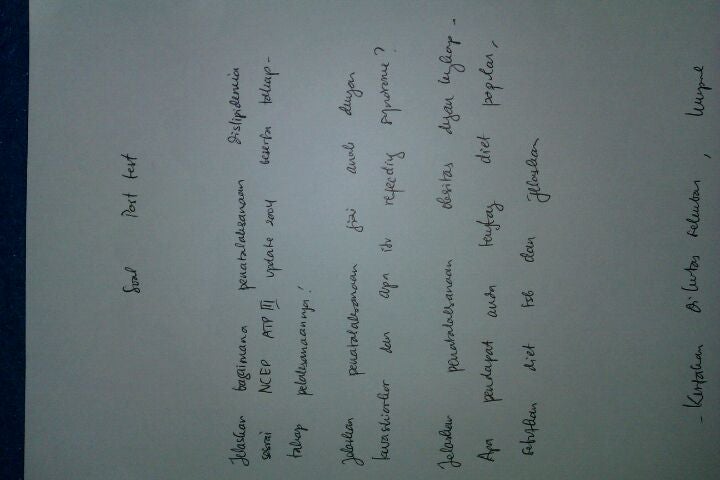 Soal Post test
Jelaskan bagaimana penatalaksanaan dislipidemia
sesuai NCEP ATP III update 2004 beserta tahap-
tahap pelaksanaannya!
Jelaskan penatalaksanaan gizi anak dengan
kwashiorkor dan apa itu refeeding syndrome?
Jelaskan penatalaksanaan obesitas dgan lengkap.
Apa pendapat anda tentang diet popular,
sebutkan diet tsb dan jelaskan
- Kerjakan di kertas selembar,